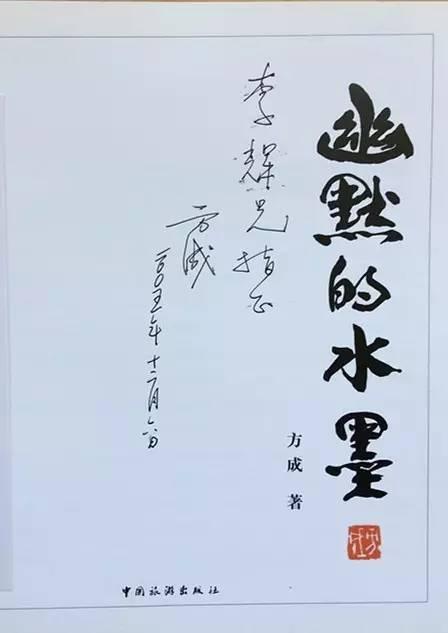 幽默的水墨
方成 著
李辉兄指正
方成
二〇〇五年十二月六日
中国旅游出版社